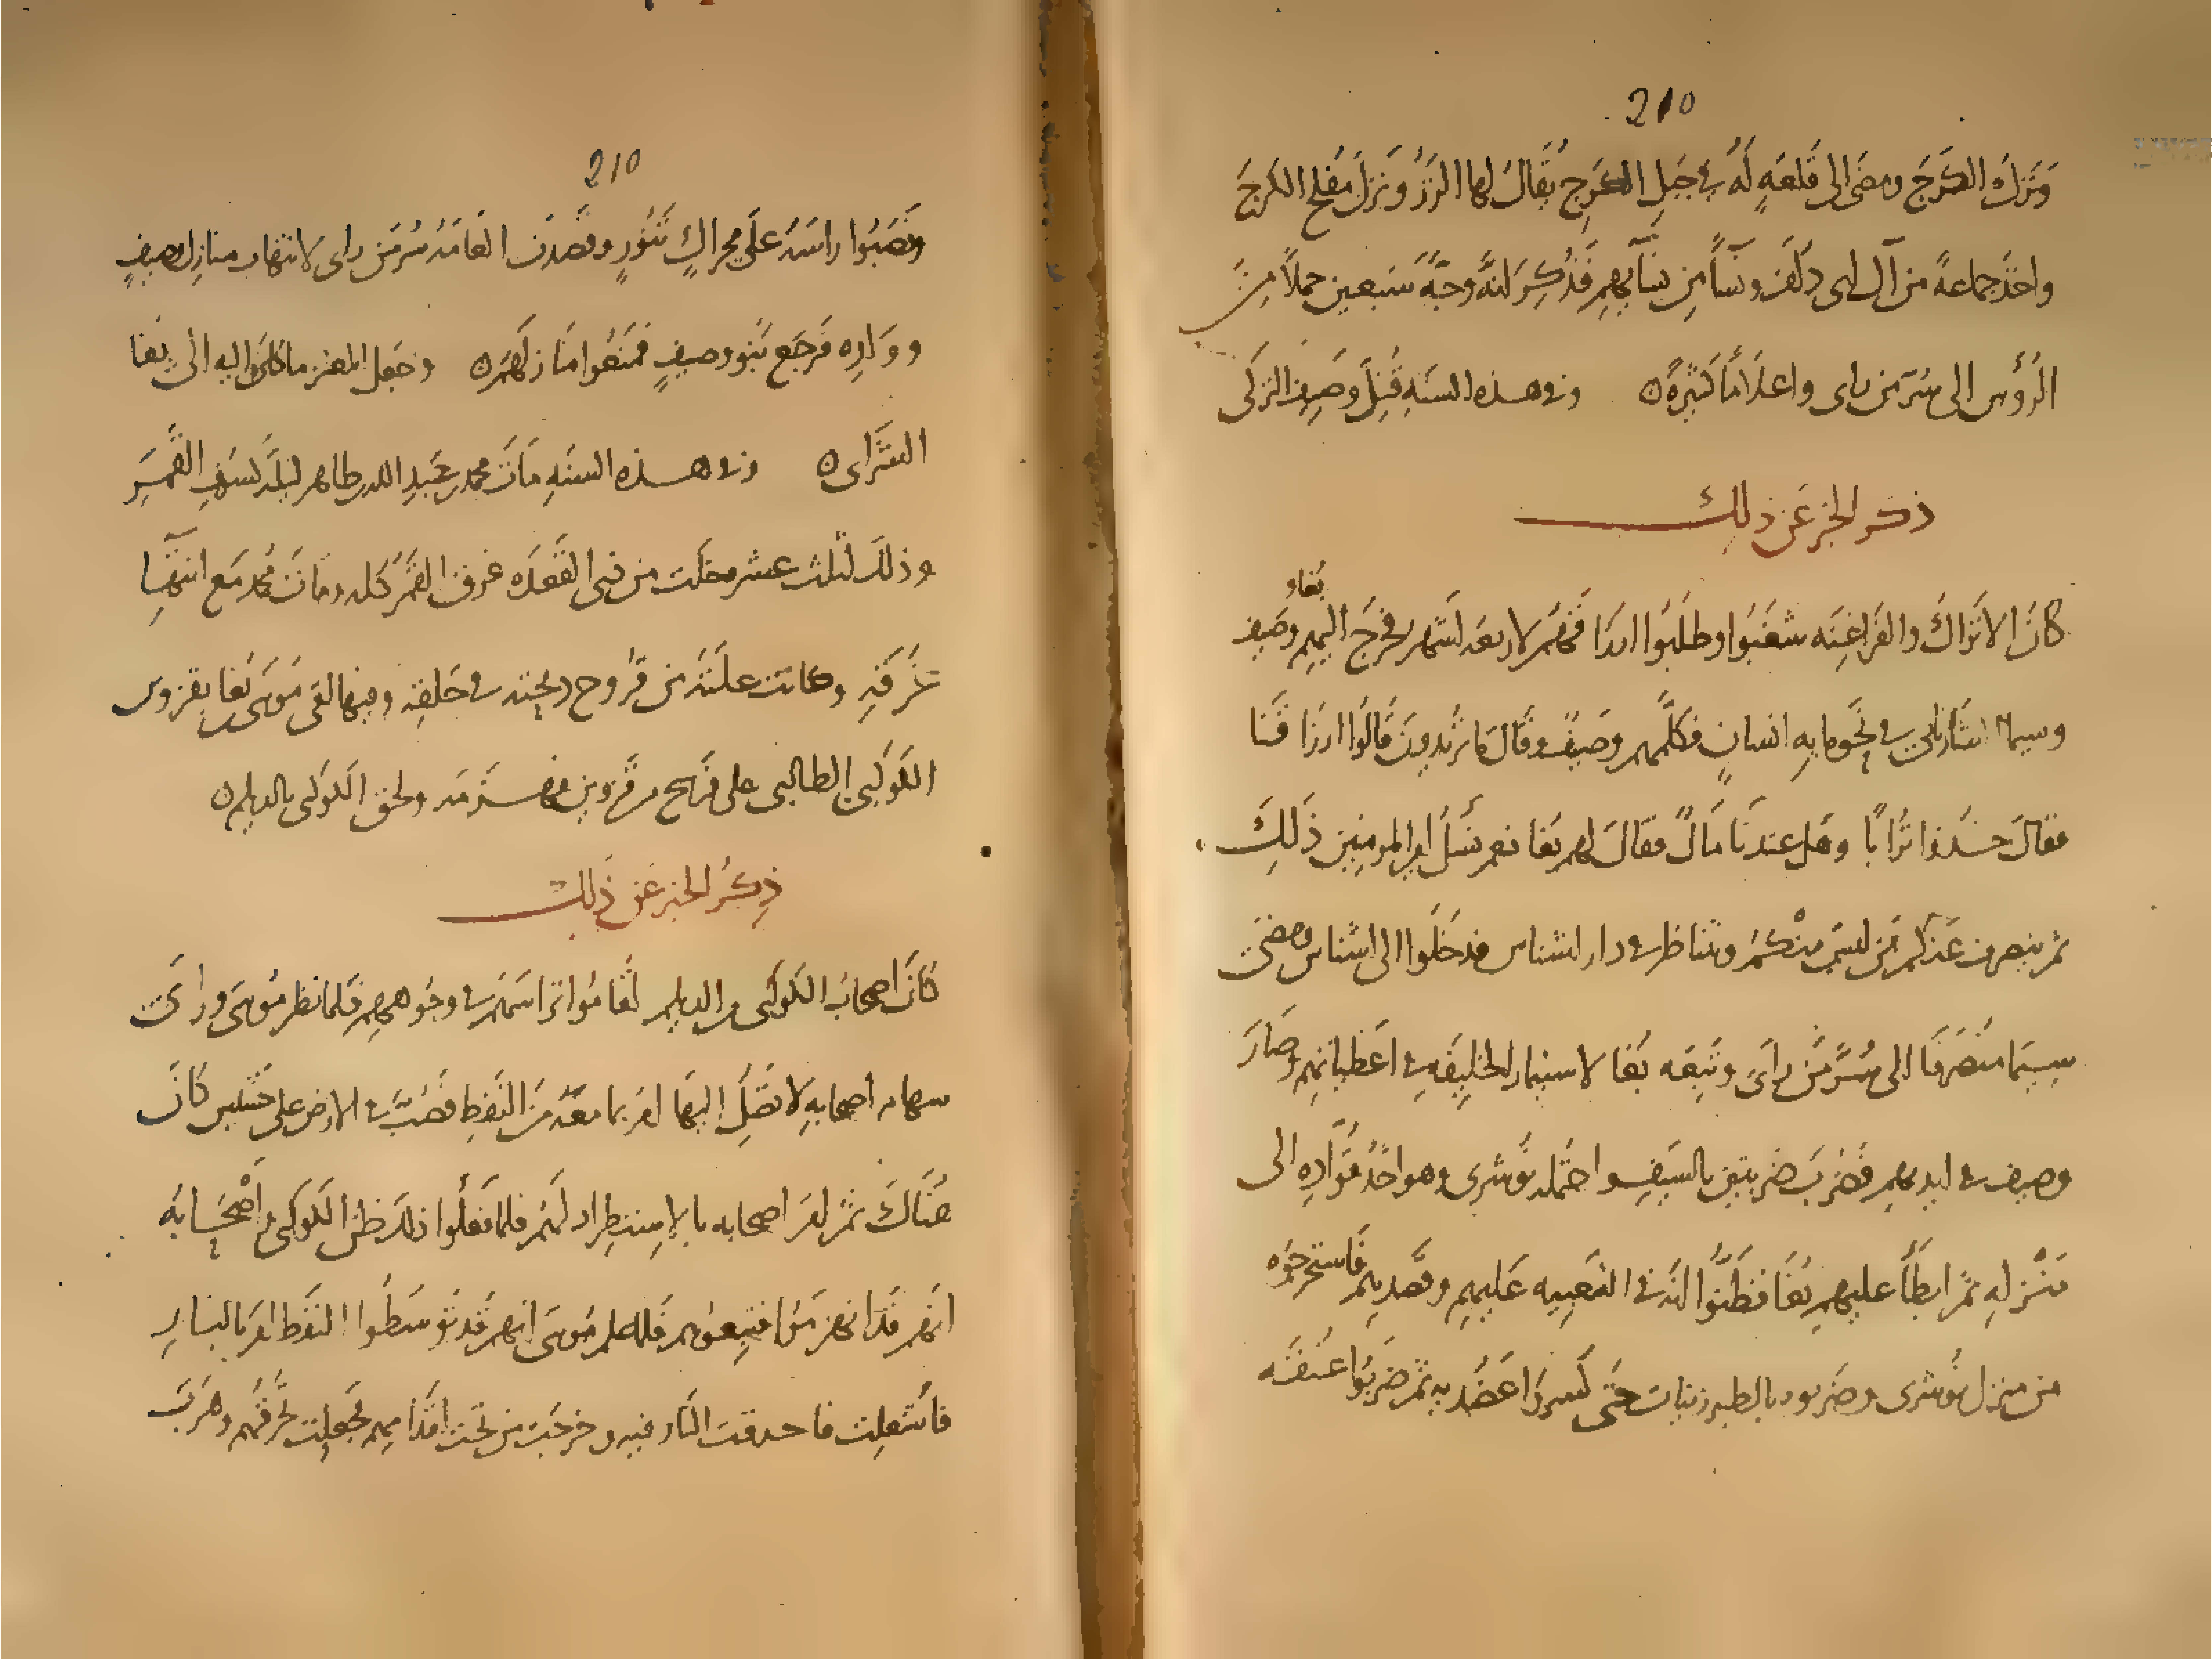 210
وَتَرَكَ الكَرَجَ ومضَى الى قَلعَهٍ لَهُ في جَبلِ الكَرجِ يُقالَ لها الزَزُ ونَزلَ مُفلح الكرجَ
واخذَ جماعةً من آل ابى دُلَفَ ونسآً مِن نسَآيهمِ فذُكِرَ انّه وجّه سَبعين حملاً مِنَ
الرُؤُس الى سُرّ مَن راى واعلاماً كثيرةً ٥ وفى هذه السنَهِ قُتِلَ وصيف التركى
ذكر الخبر عَن ذلك
كانَ الاتراكَ والفراغِنَه شغَبُوا وطلَبُوا ارزاقهم لاربعه اشهر فخرجَ اليهم بُغا و وصَيف
وسيما الشَارباني في نحَو مايهِ انسانٍ فكلَّمهم وصَيفٌ وقَالَ ما تُريدونَ قالوُا ارزاقَنا
فقالَ خذوا تُرابًا وهَل عندنَا مَالٌ فقالَ لهم بغا نعم نَسَلُ امير المومنِين ذلكَ
ثم ينصرف عَنكم مَن ليسَ منكُم ونتناظر في دار اشناس فدخَلوا الى اشناس ومضَى
سيما منصَرفا الى سُرَّ مَن راَى وتَبِعَه بُغا لاستيمار الخليفَهِ في اعَطيانهم وصَارَ
وصيف في ايديهم فضَربَ ضَربتين بالسيَفِ واحتملَه نوُشرى وهو احَدُ قوّادِه الى
منزلهِ ثم ابطَأَ عليهم بُغَا فظَنّوُا انه في التعبيهِ عَليهم وقصَد بهم فاَستخرجوُه
من منزل نوُشرى وضَربوه بالطبرزينات حَتى كسروا عَضُديه ثم ضَربَوُا عُنقَه
210
ونصَبُوا راسَهُ على محراكِ تَنّورٍ وقصَدت العَامّهُ سُرّمَن راى لانتهاب منازِل وصيفٍ
ووَلدِه فَرجَع بَنو وصيفٍ فمنعُوا منَازلهمَ ٥ وجَعل المعتز ما كان اليه الى بُغا
الشَرابى ٥ وفى هذه السنهِ ماتَ محمد بن عَبدِ الله بن طاهر ليلَه كسَفِ القَمَرِ
وذلك لثلث عشر خَلَت من ذى القَعدَه غرق القَمَرُ كله ومَاتَ محمد مَع انتهآ
غَرقهِ وكانت علتَه مَن قُروح ذبحته في حَلقِه وفيها لقى موسَى بن بُغا بقزوين
الكَوكبىَ الطالبى على فرَسخ من قَزوين فهزَمَه ولحقَ الكوكبى بالديلم ٥
ذِكرُ الخبَر عَن ذَلكَ
كانَ اصحَابُ الكوكبى من الديلم اقَامُوا تراسَهَم في وجُوههم فلما نظر مُوسَى وراىَ
سهام اصحابهِ لا تصِلُ اليهَا امَر بما معَه مَن النفطِ فصُبّ في الارض على حَشيش كانَ
هُنَاكَ ثم امَر اصحابه بالاستطِراد لَهُم فلما فعَلُوا ذلكَ ظن الكوكبى واصَحَابُه
انهُم قَد انهزمَوُا فتَبِعوُهم فلما علم مُوسَى انهم قَد توَسَطُوا النفَط امَر بالنارِ
فاُشعِلت فاحدقت النَار فيه وخرجَت من تحَت اقدَامِهم فجعلِت تحرقهُم وهَربَ